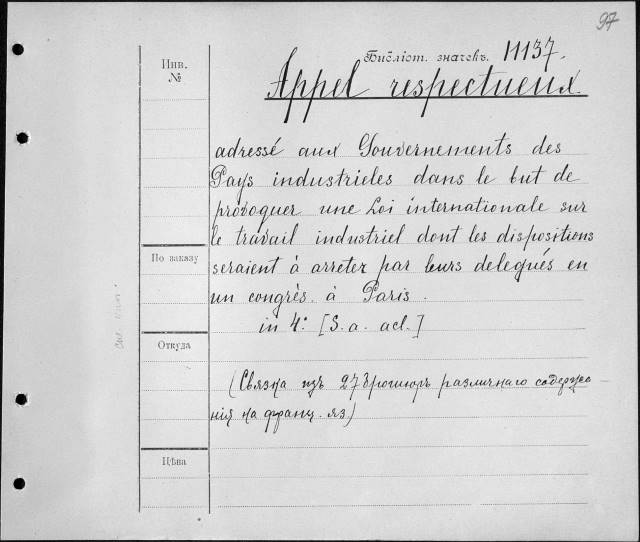 97
Библіот. значекъ. 11137.
Инв.
№
Appel respectueux.
adressé aux Gouvernements des
Pays industrieles dans le but de
provoquer une Loi internationale sur
le travail industriel dont les dispositions
По заказу
seraient à arreter par leurs delegués en
un congrès à Paris.
in 4º [S. a. acl.]
Откуда
(Связка изъ 27 брошюръ различнаго содержа-
нія на франц. яз.)
Цѣна